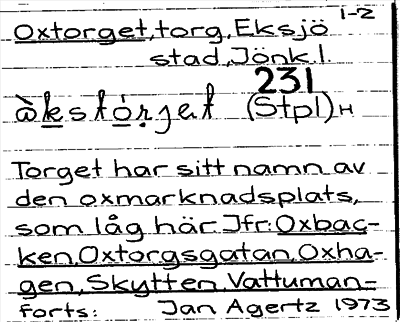 1-2
Oxtorget, torg, Eksjö
stad, Jönk. l.
231
(Stpl) H
Torget har sitt namn av
den oxmarknadsplats,
som låg här. Jfr: Oxbac-
ken, Oxtorgsgatan, Oxha-
gen, Skytten, Vattuman-
forts: Jan Agertz 1973